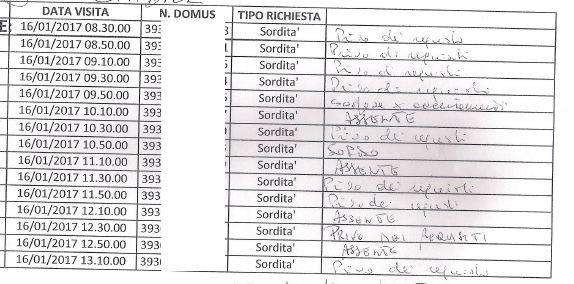 DATA VISITA N. DOMUS TIPO RICHIESTA
16/01/2017 08.30.00 393 3 Sordita' Privo dei requisiti
16/01/2017 08.50.00 393 Sordita' Privo di requisiti
16/01/2017 09.10.00 393 Sordita' Privo di requisiti
16/01/2017 09.30.00 393 4 Sordita' Privo di requisiti
16/01/2017 09.50.00 393 Sordita'
16/01/2017 10.10.00 393 Sordita' ASSENTE
16/01/2017 10.30.00 393 Sordita' Privo dei requisiti
16/01/2017 10.50.00 393 Sordita' SORDO
16/01/2017 11.10.00 393 Sordita' ASSENTE
16/01/2017 11.30.00 393 Sordita' Privo dei requisiti
16/01/2017 11.50.00 393 Sordita' Privo dei requisiti
16/01/2017 12.10.00 393 Sordita' ASSENTE
16/01/2017 12.30.00 393 Sordita' PRIVO DEI REQUISITI
16/01/2017 12.50.00 393 Sordita' ASSENTE
16/01/2017 13.10.00 393 Sordita' Privo dei requisiti